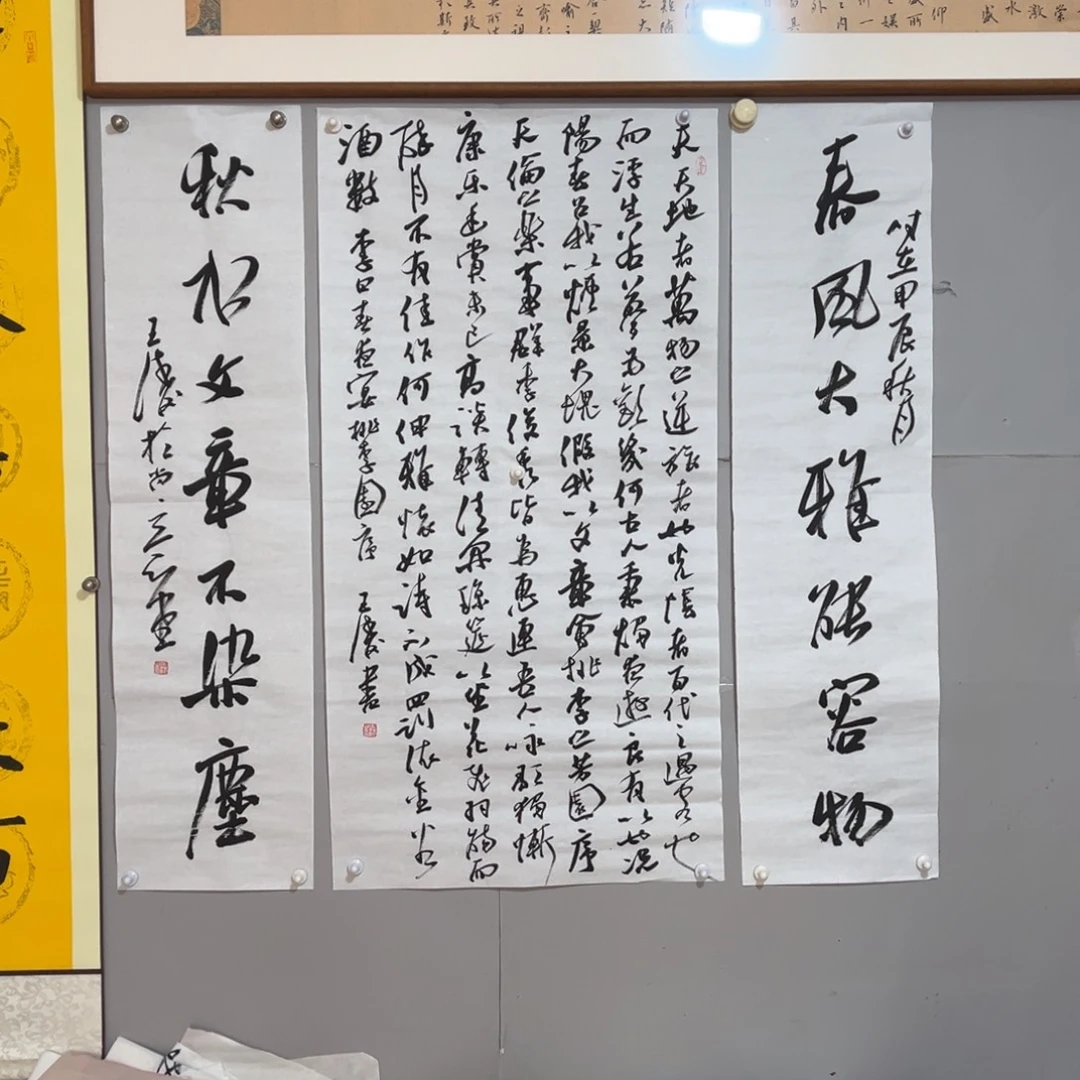 春風大雅能容物
时在甲辰秋月
夫天地者萬物之逆旅者也光陰者百代之過客也
而浮生若夢為歡幾何古人秉燭夜遊良有以也況
陽春召我以煙景大塊假我以文章會桃李之芳園序
天倫之樂事群季俊秀皆為惠連吾人詠歌獨慚
康乐幽賞未已高談轉清開瓊筵以坐花飛羽觴而
醉月不有佳作何伸雅懷如詩不成罰依金谷
酒數 李白春夜宴桃李園序 王慶書
秋水文章不染塵
王慶於